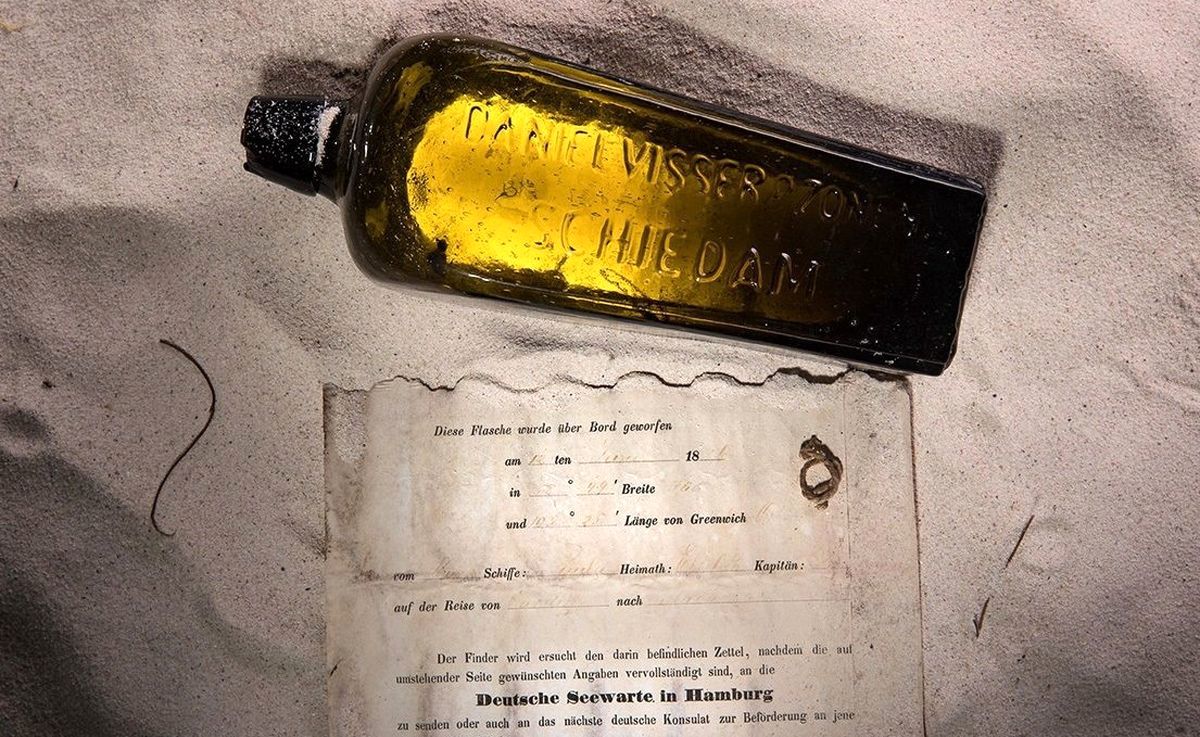 DANIEL VISSER & ZONEN
SCHIEDAM
Diese Flasche wurde über Bord geworfen
am 12 ten 18
in ° ' Breite
und ° ' Länge von Greenwich
vom Schiffe: Heimath: Kapitän:
auf der Reise von nach
Der Finder wird ersucht den darin befindlichen Zettel, nachdem die auf
umstehender Seite gewünschten Angaben vervollständigt sind, an die
Deutsche Seewarte in Hamburg
zu senden oder auch an das nächste deutsche Konsulat zur Beförderung an jene